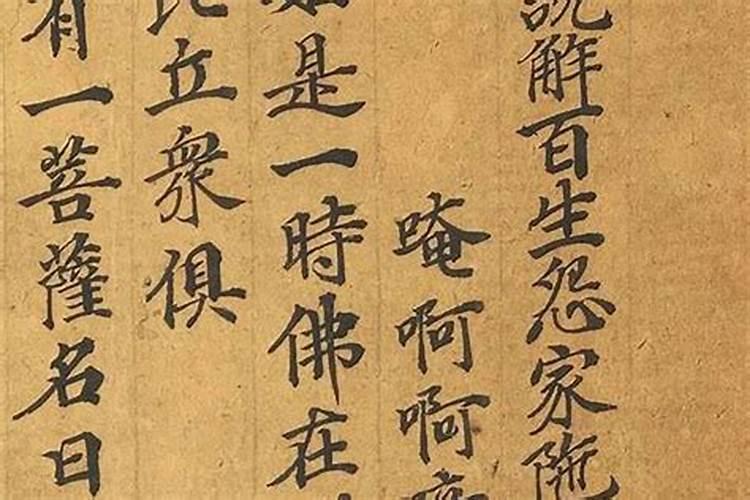 說解百生怨家陁
唵啊啊
如是一時佛在
比丘衆俱
有一菩薩名曰